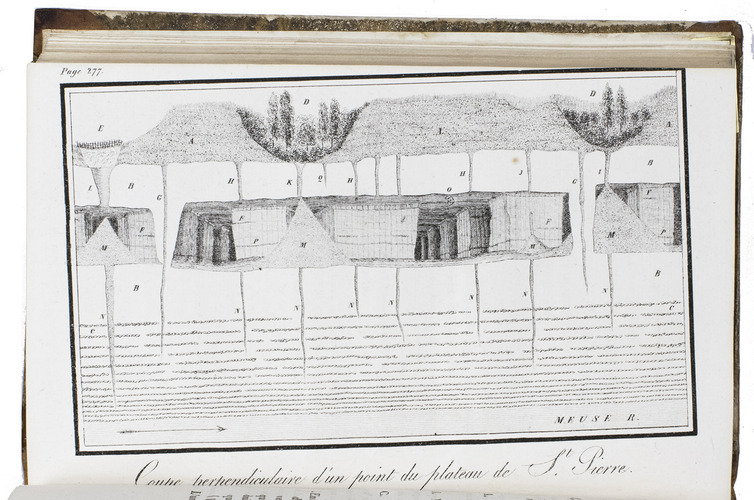 Page 277.
D D
E A A A
L B G H K Q H H J G I B
F E O F F
M M P M M P
B B
N N N N N N N
C C
MEUSE R.
Coupe perpendiculaire d'un point du plateau de S.t Pierre.